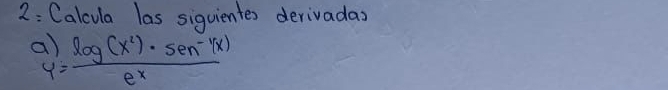 2: Calcula las siguientes derivadas
a) log(x²) · sen⁻¹(x)
y = ―――
eˣ